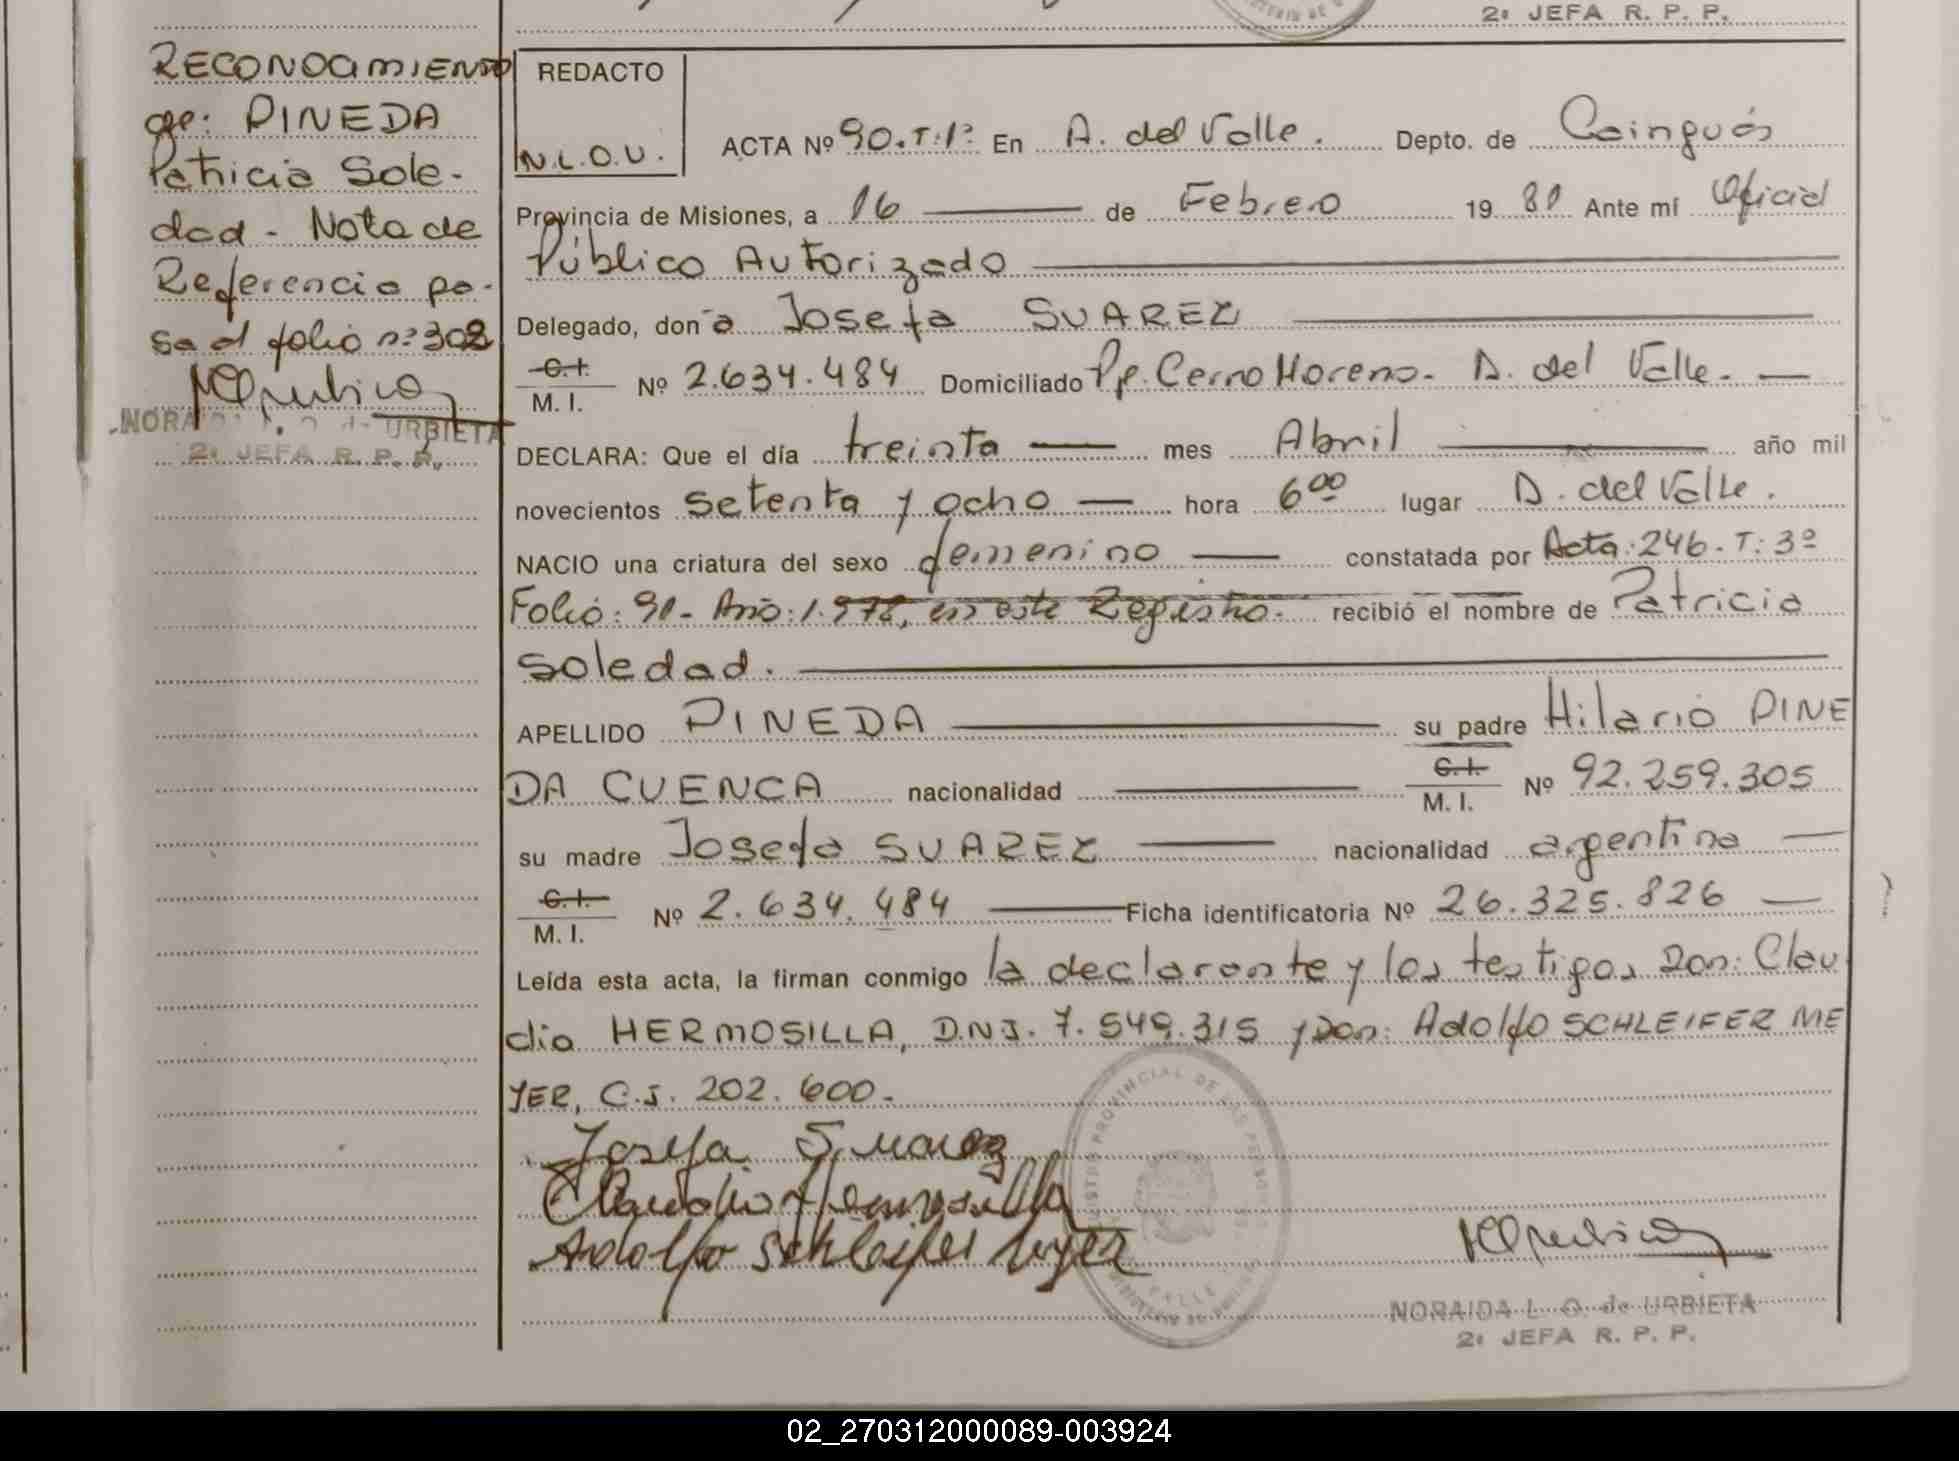 2ª JEFA R. P. P.
RECONOCIMIENTO
de: PINEDA
Patricia Sole-
dad - Nota de
Referencia pa-
sa al folio nº 302
NORAIDA L. O. de URBIETA
2ª JEFA R. P. P.
REDACTO
N.L.O.U.
ACTA Nº 90.T:1º En A. del Valle. Depto. de Cainguás
Provincia de Misiones, a 16 de Febrero 19 81 Ante mí Oficial
Público Autorizado
Delegado, don a Josefa SUAREZ
C.I. / M. I. Nº 2.634.484 Domiciliado Pje. Cerro Moreno - A. del Valle.
DECLARA: Que el día treinta mes Abril año mil
novecientos setenta y ocho hora 6 00 lugar A. del Valle.
NACIO una criatura del sexo femenino constatada por Acta: 246. T: 3º
Folio: 91- Año: 1.978, en este Registro. recibió el nombre de Patricia
Soledad.
APELLIDO PINEDA su padre Hilario PINE
DA CUENCA nacionalidad C.I. / M. I. Nº 92.259.305
su madre Josefa SUAREZ nacionalidad argentina
C.I. / M. I. Nº 2.634.484 Ficha identificatoria Nº 26.325.826
Leída esta acta, la firman conmigo la declarante y los testigos Don: Clau
dio HERMOSILLA, D.N.I. 7.549.315 y Don: Adolfo SCHLEIFER ME
YER, C.I. 202.600.
Josefa Suarez
Claudio Hermosilla
Adolfo Schleifer Meyer
NORAIDA L. O. de URBIETA
2ª JEFA R. P. P.
02_270312000089-003924